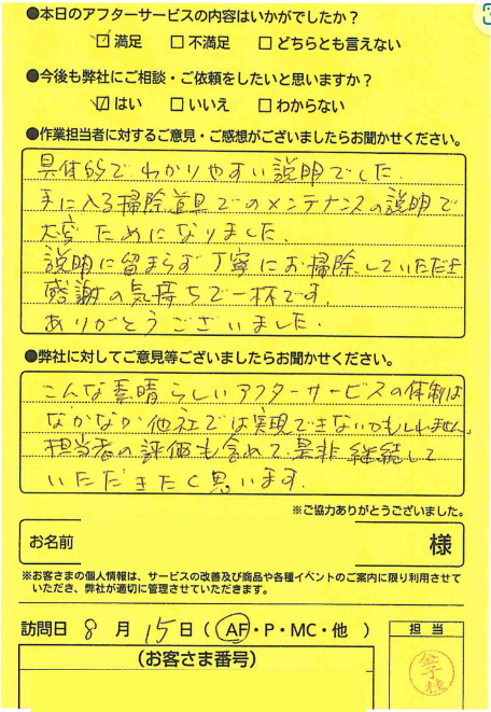 ●本日のアフターサービスの内容はいかがでしたか？
☑ 満足 □ 不満足 □ どちらとも言えない
●今後も弊社にご相談・ご依頼をしたいと思いますか？
☑ はい □ いいえ □ わからない
●作業担当者に対するご意見・ご感想がございましたらお聞かせください。
具体的でわかりやすい説明でした。
手に入る掃除道具でのメンテナンスの説明で
大変ためになりました。
説明に留まらず丁寧にお掃除していただき
感謝の気持ちで一杯です。
ありがとうございました。
●弊社に対してご意見等ございましたらお聞かせください。
こんな素晴らしいアフターサービスの体制は
なかなか他社では実現できないかもしれません。
担当者の評価も含めて是非継続して
いただきたく思います。
※ご協力ありがとうございました。
お名前 様
※お客さまの個人情報は、サービスの改善及び商品や各種イベントのご案内に限り利用させて
いただき、弊社が適切に管理させていただきます。
訪問日 8 月 15 日（ AF・P・MC・他 ）
担 当
（お客さま番号）
金子